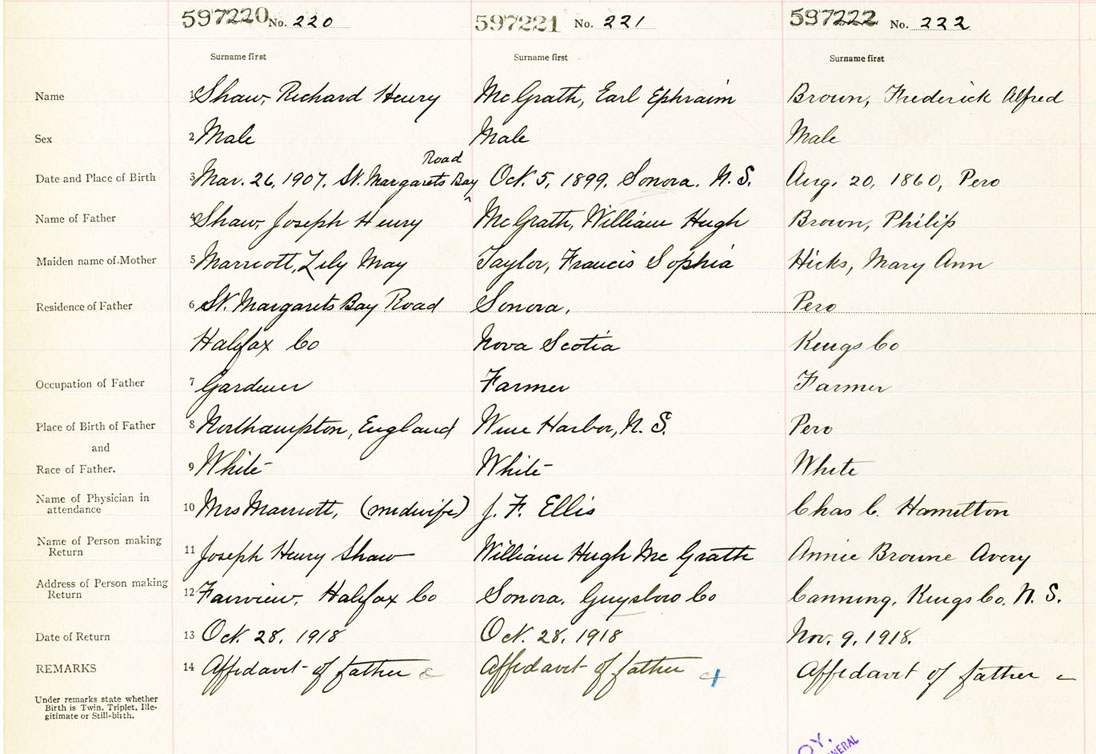 597220 No. 220 597221 No. 221 597222 No. 222
Surname first Surname first Surname first
Name 1 Shaw, Richard Henry McGrath, Earl Ephraim Brown, Frederick Alfred
Sex 2 Male Male Male
Road
Date and Place of Birth 3 Mar. 26, 1907, St. Margarets Bay Oct. 5, 1899, Sonora, N.S. Aug. 20, 1860, Pero
Name of Father 4 Shaw, Joseph Henry McGrath, William Hugh Brown, Philip
Maiden name of Mother 5 Marriott, Lily May Taylor, Francis Sophia Hicks, Mary Ann
Residence of Father 6 St. Margarets Bay Road Sonora, Pero
Halifax Co Nova Scotia Kings Co
Occupation of Father 7 Gardner Farmer Farmer
Place of Birth of Father 8 Northampton, England Wine Harbor, N.S. Pero
and
Race of Father. 9 White White White
Name of Physician in
attendance 10 Mrs Marriott, (midwife) J. F. Ellis Chas C. Hamilton
Name of Person making
Return 11 Joseph Henry Shaw William Hugh McGrath Annie Browne Avery
Address of Person making
Return 12 Fairview, Halifax Co Sonora, Guysboro Co Canning, Kings Co. N.S.
Date of Return 13 Oct. 28, 1918 Oct. 28, 1918 Nov. 9, 1918.
REMARKS 14 Affidavit of father Affidavit of father Affidavit of father
Under remarks state whether
Birth is Twin, Triplet, Ille-
gitimate or Still-birth.